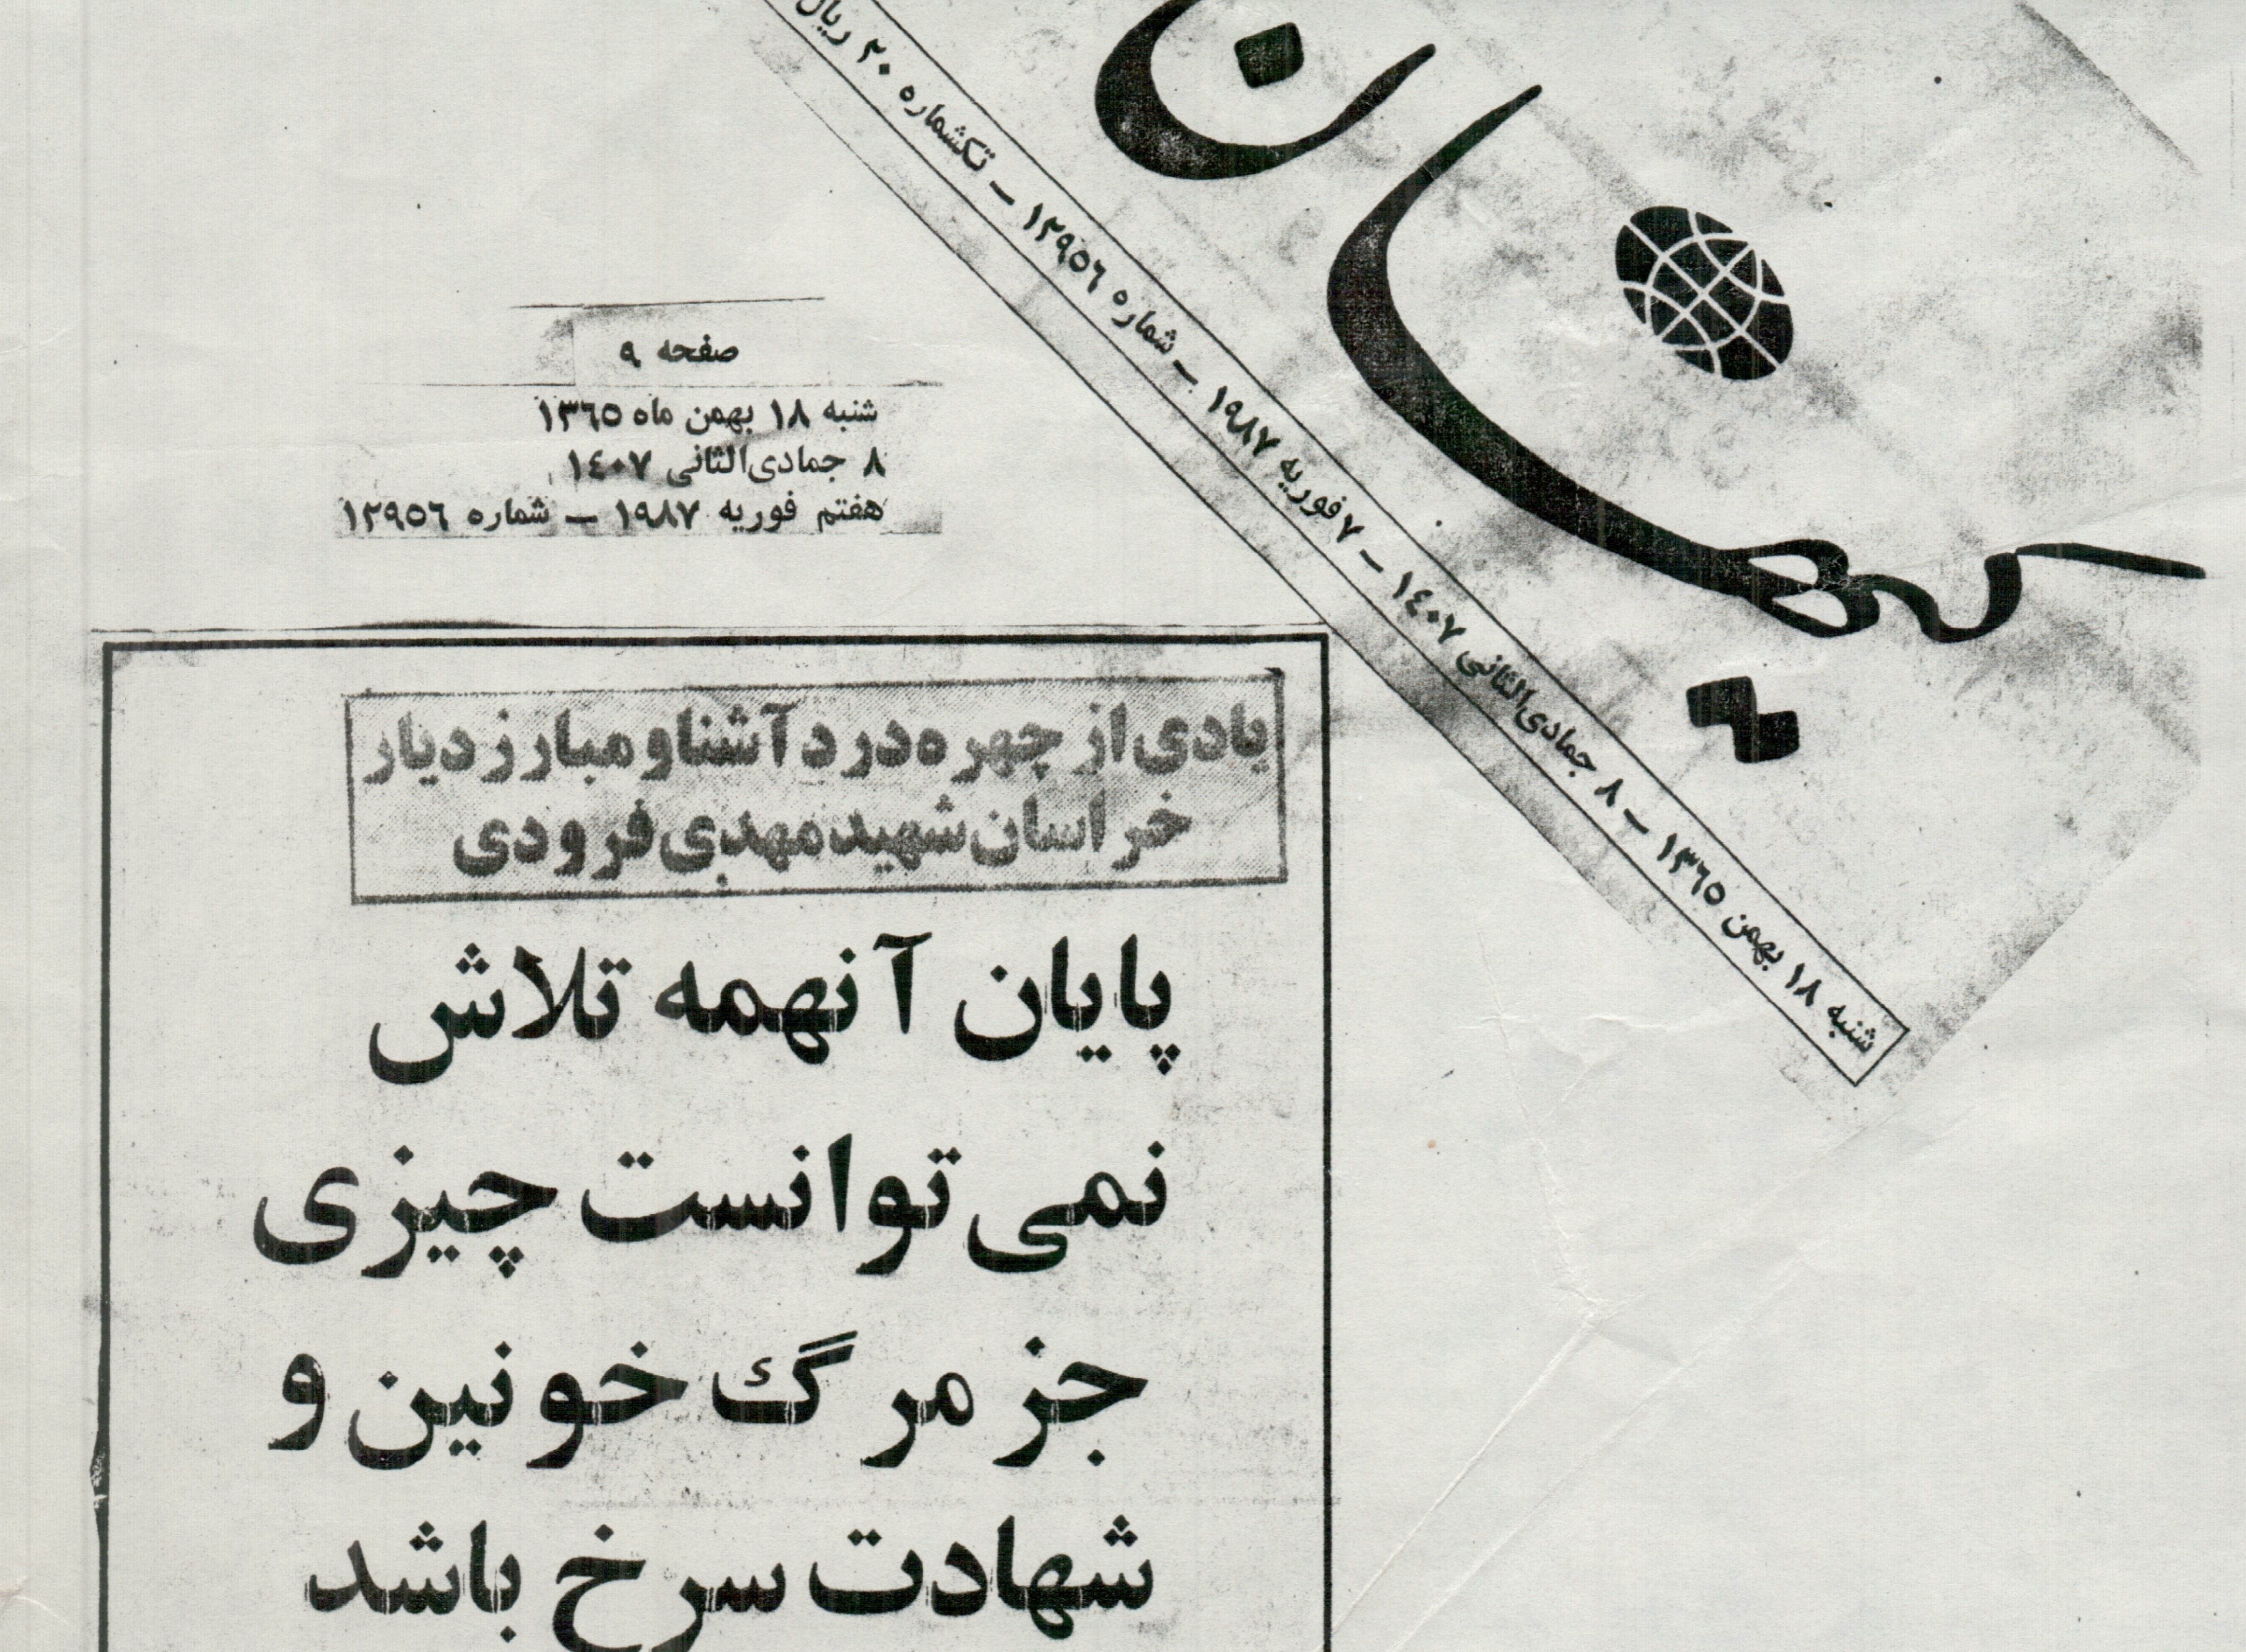 کیهان
شنبه ۱۸ بهمن ۱۳٦۵ – ۸ جمادی‌الثانی ۱٤۰۷ – ۷ فوریه ۱۹۸۷ – شماره ۱۲۹۵٦ – تکشماره ۲۰ ریال
صفحه ۹
شنبه ۱۸ بهمن ماه ۱۳٦۵
۸ جمادی‌الثانی ۱٤۰۷
هفتم فوریه ۱۹۸۷ – شماره ۱۲۹۵٦
یادی از چهره درد آشنا و مبارز دیار
خراسان شهید مهدی فرودی
پایان آنهمه تلاش
نمی توانست چیزی
جز مرگ خونین و
شهادت سرخ باشد